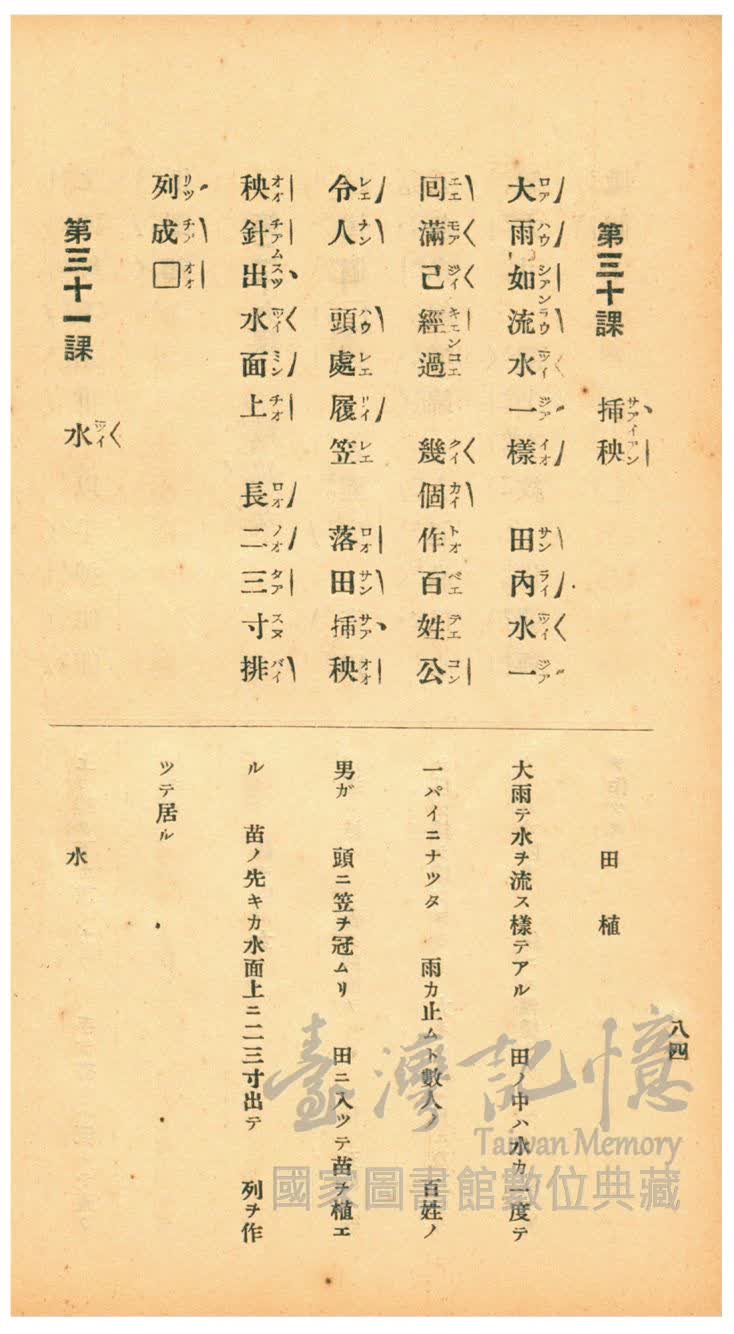 八四
第三十課　挿秧
大雨如流水一樣　田內水一
回滿己經過　幾個作百姓公
令人　頭處履笠　落田挿秧
秧針出水面上　長二三寸排
列成□
第三十一課　水
田植
大雨テ水チ流ス樣テアル　田ノ中ハ水カ一度テ
一パイニナツタ　雨カ止ムト數人ノ　百姓ノ
男ガ　頭ニ笠チ冠ムリ　田ニ入ツテ苗チ植エ
ル　苗ノ先キカ水面上ニ二三寸出テ　列ヲ作
ツテ居ル
水
臺灣記憶
Taiwan Memory
國家圖書館數位典藏